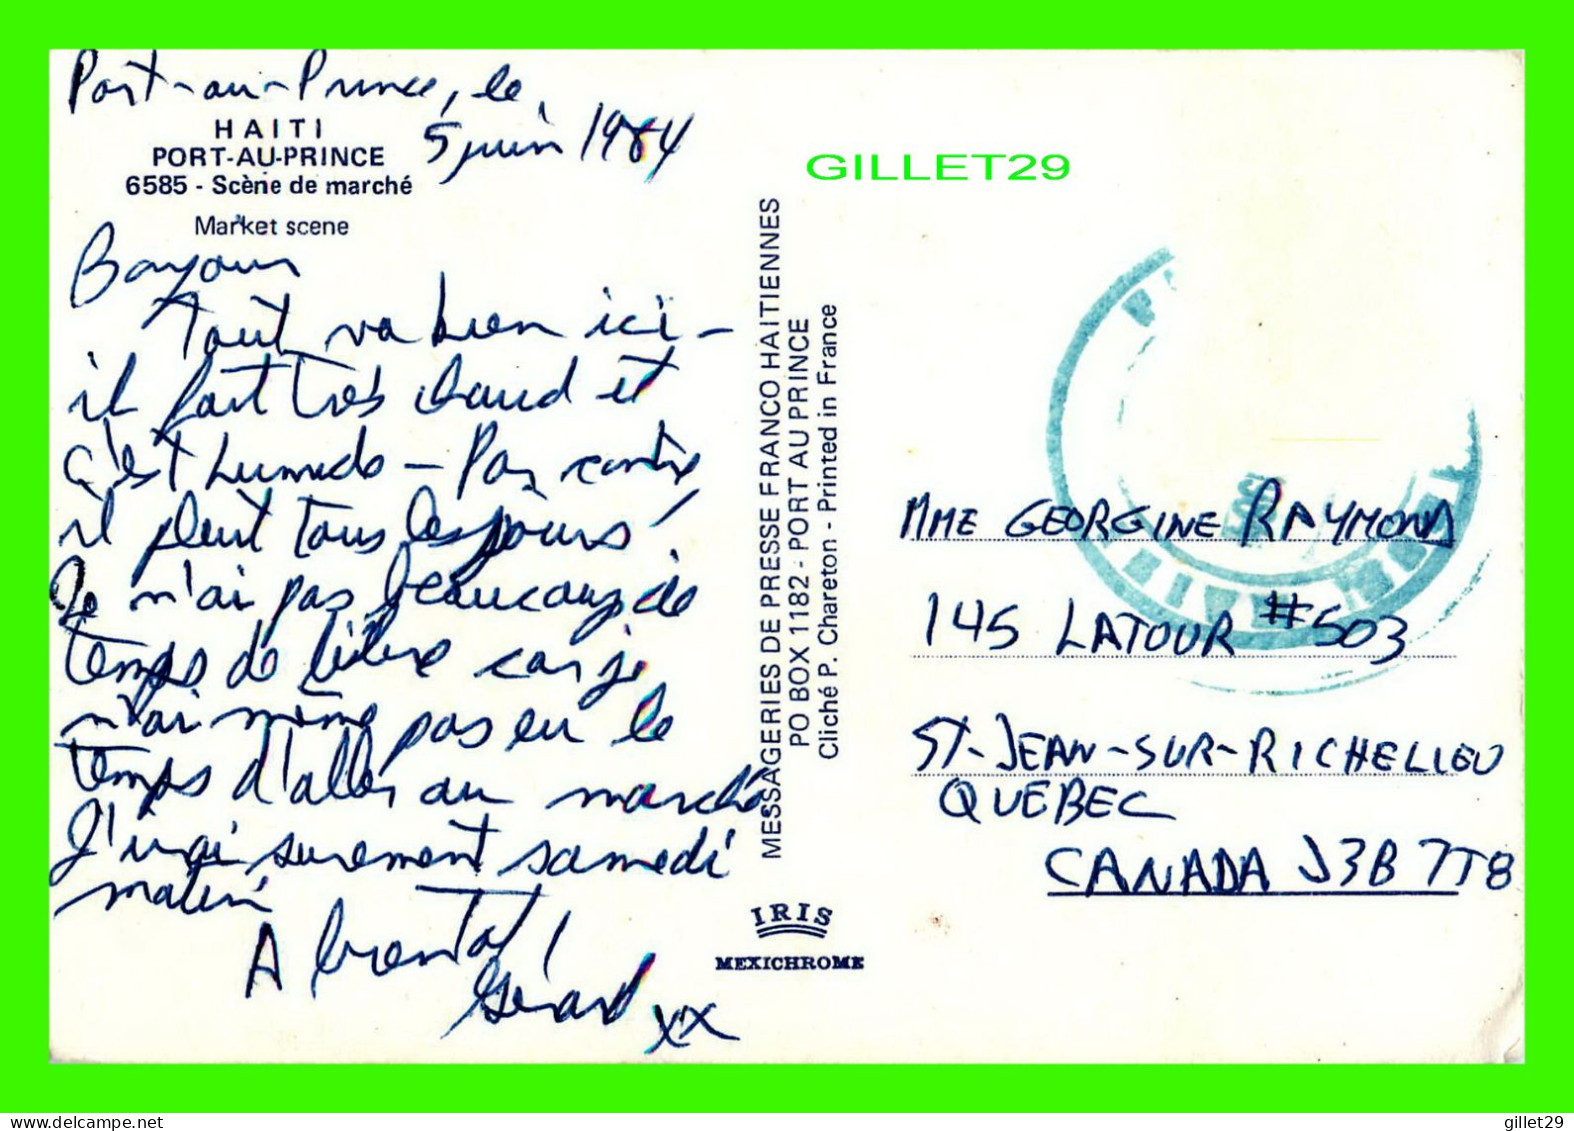 Port-au-Prince, le
5 juin 1984
HAITI
PORT-AU-PRINCE
6585 - Scène de marché
Market scene
Bonjour
Tout va bien ici -
il fait très chaud et
c'est humide - Par contre
il pleut tous les jours!
Je n'ai pas beaucoup de
temps de libre car je
n'ai même pas eu le
temps d'aller au marché
J'irai surement samedi
matin
A bientôt!
Gérard xx
MESSAGERIES DE PRESSE FRANCO HAITIENNES
PO BOX 1182 - PORT AU PRINCE
Cliché P. Chareton - Printed in France
IRIS
MEXICHROME
GILLET29
MME GEORGINE RAYMOND
145 LATOUR #503
ST-JEAN-SUR-RICHELIEU
QUEBEC
CANADA J3B 7T8
gillet29